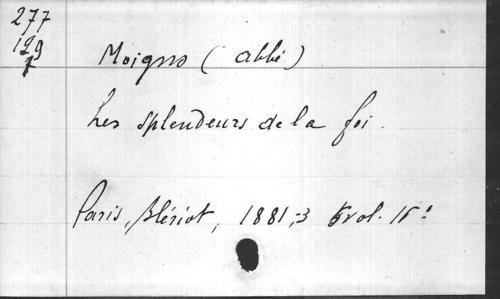 277
129
7
Moigno (abbé)
Les splendeurs de la foi.
Paris, Blériot, 1881,-3 5 vol. 16º